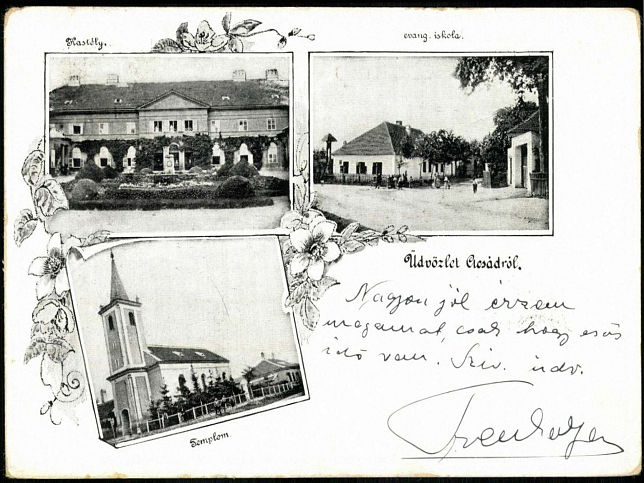 Kastély.
evang. iskola.
Üdvözlet Acsádról.
Nagyon jól érzem
magamat, csak hogy esős
idő van. Sziv. üdv.
Templom